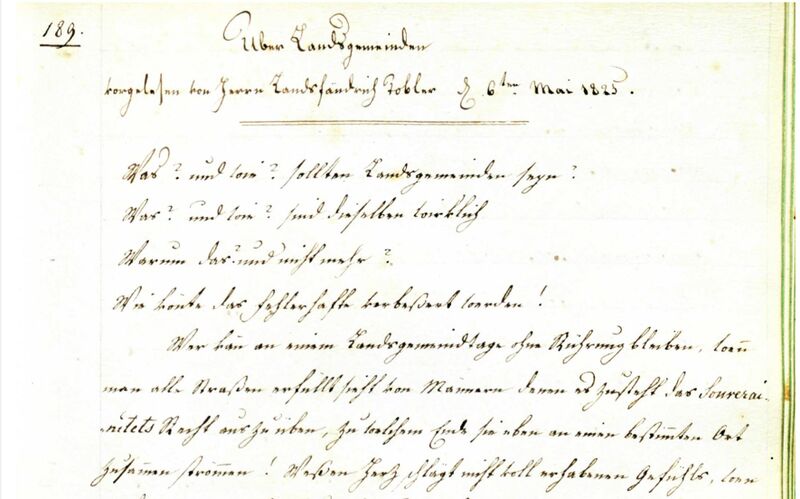 189.
Über Landsgemeinden
vorgelesen von Herrn Landsfändrich Tobler d. 6ten Mai 1825.
Was? und wie? sollten Landsgemeinden seyn?
Was? und wie? sind dieselben wirklich
Warum das? und nicht mehr?
Wie könte das fehlerhafte verbeßert werden!
Wer kan an einem Landsgemeindtage ohne Rührung bleiben, wenn
man alle Straßen erfüllt sieht von Männern denen es zusteht das Souverai-
nitets Recht auszuüben, zu welchem Ende sie eben an einen bestimten Ort
zusammen strömmen! Weßen Herz schlägt nicht voll erhabenen Gefühls, wen